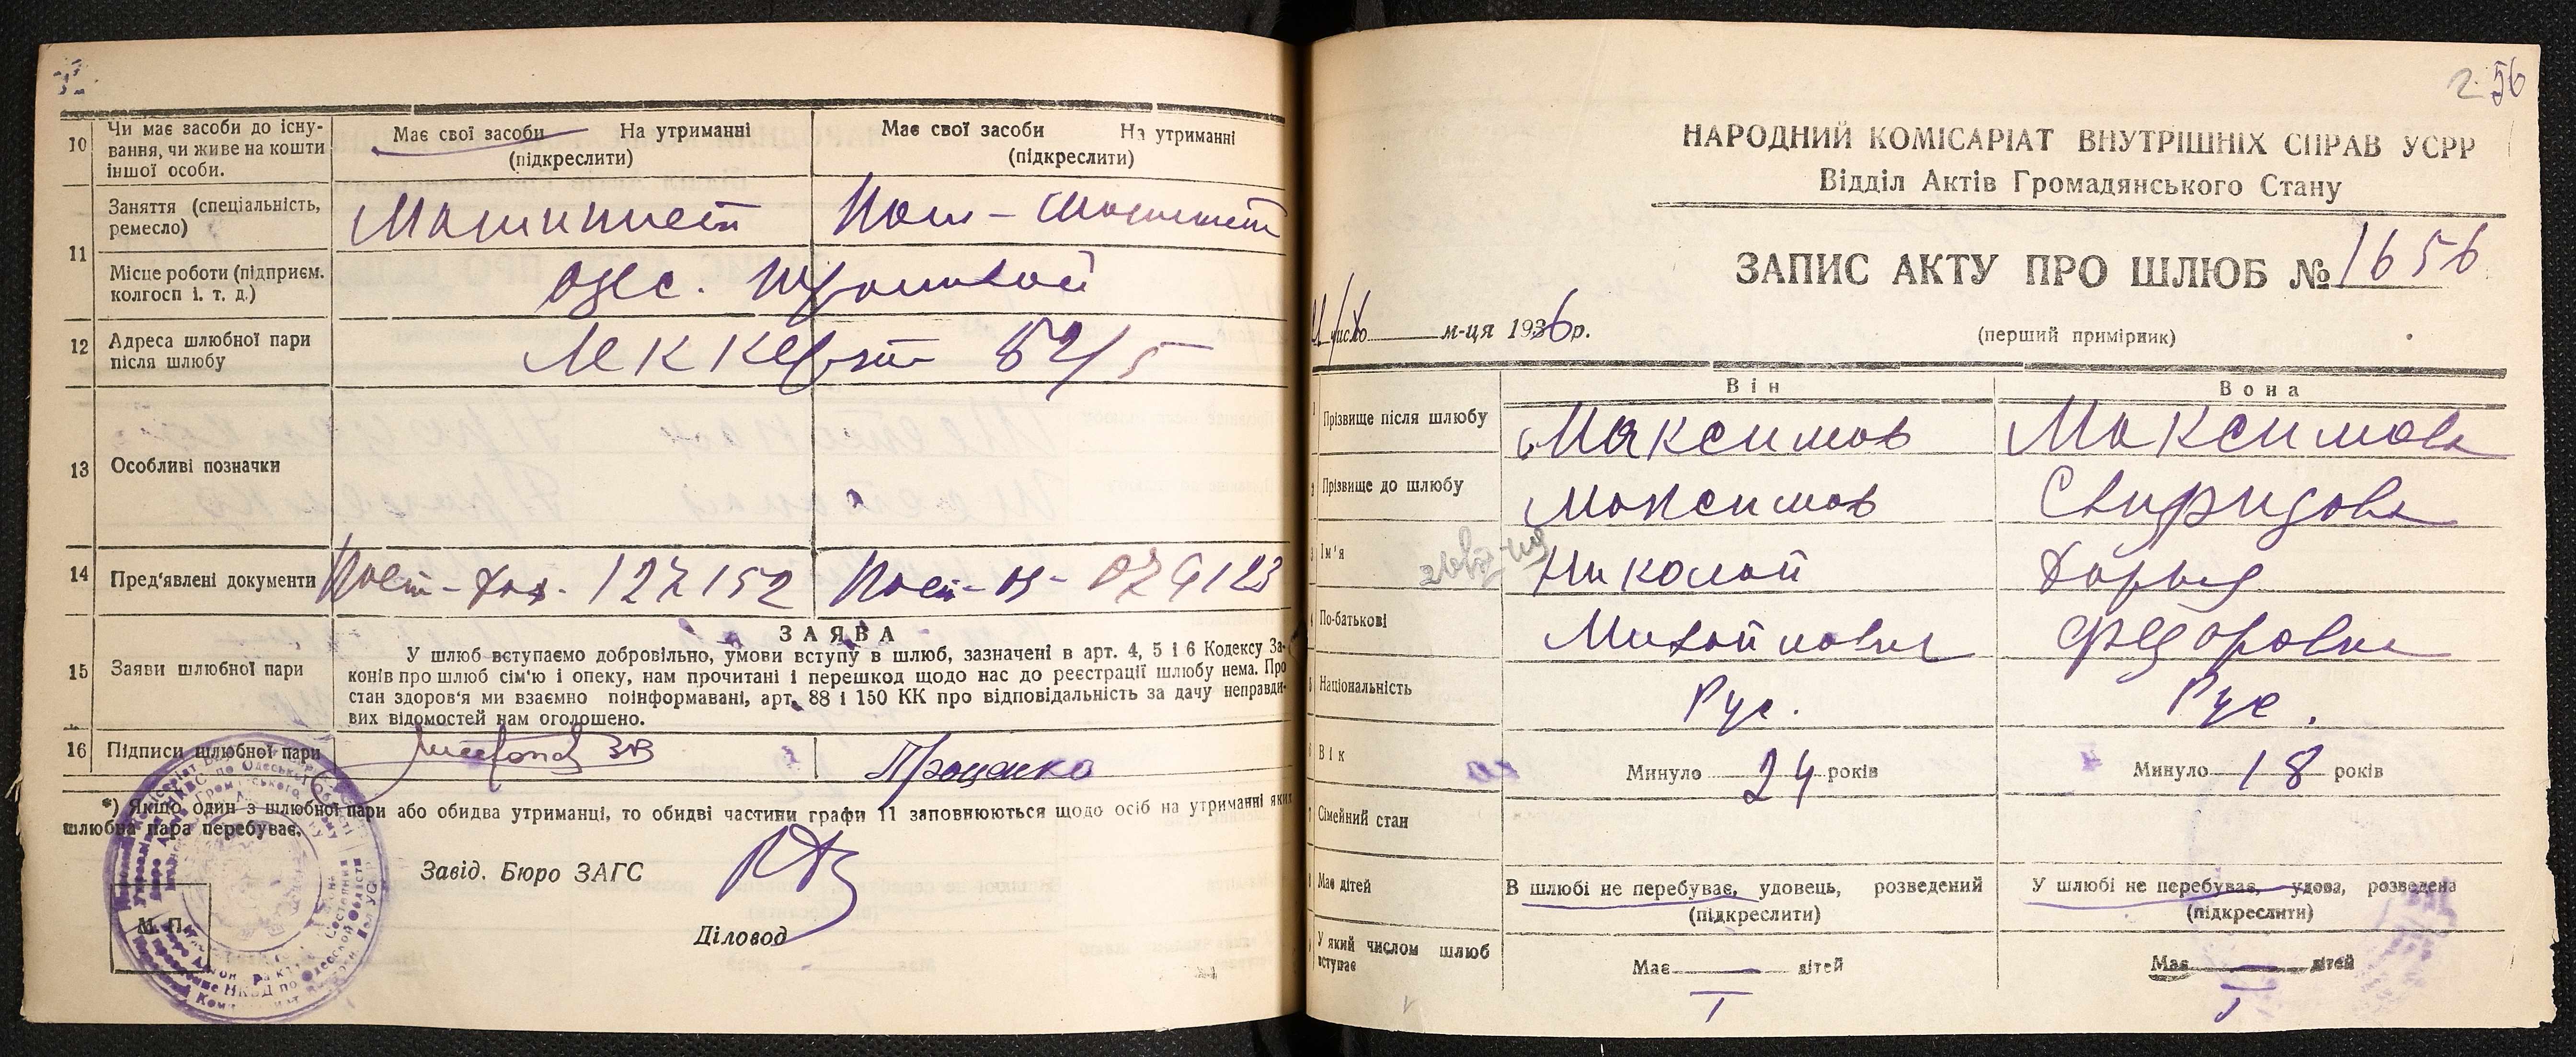 10
Чи має засоби до існу-
вання, чи живе на кошти
іншої особи.
Має свої засоби На утриманні
(підкреслити)
Має свої засоби На утриманні
(підкреслити)
11
Заняття (спеціальність,
ремесло)
Машинист
Пом -
Місце роботи (підприєм.
колгосп і. т. д.)
Одес.
12
Адреса шлюбної пари
після шлюбу
52/5
13
Особливі позначки
14
Пред'явлені документи
127152
15
Заяви шлюбної пари
ЗАЯВА
У шлюб вступаємо добровільно, умови вступу в шлюб, зазначені в арт. 4, 5 і 6 Кодексу За-
конів про шлюб сім'ю і опеку, нам прочитані і перешкод щодо нас до реєстрації шлюбу нема. Про
стан здоров'я ми взаємно поінформавані, арт. 88 і 150 КК про відповідальність за дачу неправди-
вих відомостей нам оголошено.
16
Підписи шлюбної пари
Проценко
*) Якщо один з шлюбної пари або обидва утриманці, то обидві частини графи 11 заповнюються щодо осіб на утриманні яких
шлюбна пара перебуває.
Завід. Бюро ЗАГС
Діловод
М. П.
2 56
НАРОДНИЙ КОМІСАРІАТ ВНУТРІШНІХ СПРАВ УСРР
Відділ Актів Громадянського Стану
ЗАПИС АКТУ ПРО ШЛЮБ № 1656
м-ця 1936 р.
(перший примірник)
Він
Вона
Прізвище після шлюбу
Максимов
Максимова
Прізвище до шлюбу
Максимов
Свиридова
Ім'я
Николай
Дарья
По-батькові
Михайлович
Федоровна
Національність
Рус.
Рус.
Вік
Минуло 24 років
Минуло 18 років
Сімейний стан
Має дітей
В шлюбі не перебуває, удовець, розведений
(підкреслити)
У шлюбі не перебуває, удова, розведена
(підкреслити)
У який числом шлюб
вступає
Має — дітей
Має — дітей
I
I